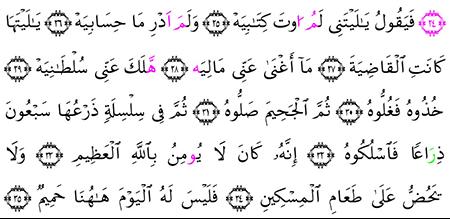 ﴿٢٤﴾ فَيَقُولُ يَـٰلَيْتَنِى لَمُ اوتَ كِتَـٰبِيَهْ ﴿٢٥﴾ وَلَمَ اَدْرِ مَا حِسَابِيَهْ ﴿٢٦﴾ يَـٰلَيْتَهَا
كَانَتِ ٱلْقَاضِيَةَ ﴿٢٧﴾ مَآ أَغْنَىٰ عَنِّى مَالِيَه ﴿٢٨﴾ هَّلَكَ عَنِّى سُلْطَـٰنِيَهْ ﴿٢٩﴾
خُذُوهُ فَغُلُّوهُ ﴿٣٠﴾ ثُمَّ ٱلْجَحِيمَ صَلُّوهُ ﴿٣١﴾ ثُمَّ فِى سِلْسِلَةٍ ذَرْعُهَا سَبْعُونَ
ذِرَاعًا فَٱسْلُكُوهُ ﴿٣٢﴾ إِنَّهُۥ كَانَ لَا يُومِنُ بِٱللَّهِ ٱلْعَظِيمِ ﴿٣٣﴾ وَلَا
يَحُضُّ عَلَىٰ طَعَامِ ٱلْمِسْكِينِ ﴿٣٤﴾ فَلَيْسَ لَهُ ٱلْيَوْمَ هَـٰهُنَا حَمِيمٌ ﴿٣٥﴾